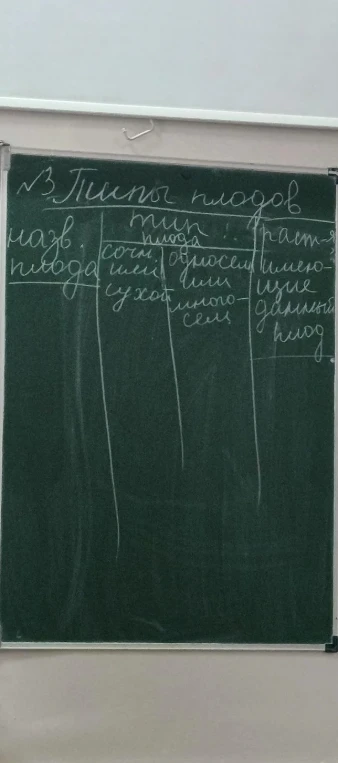 √3. Типы плодов
назв.
плода
тип
плода
сочн.
или
сухой
односем.
или
много-
сем
раст-я
имею-
щие
данный
плод